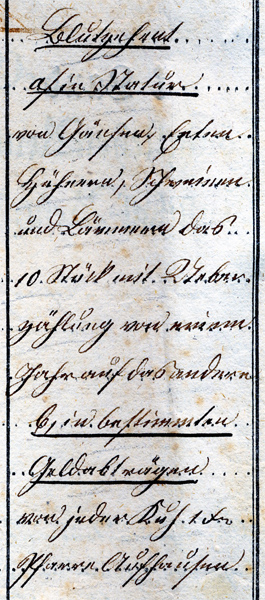 Blutzehent
a, in Natur
von Gänsen, Enten
Hühnern, Schweinen
und Lämmern das
10. Stück mit Ueber
zählung von einem
Jahr auf das andere
b, in bestimmten
Geldabträgen
von jeder Kuh
Pfarre Aufhausen